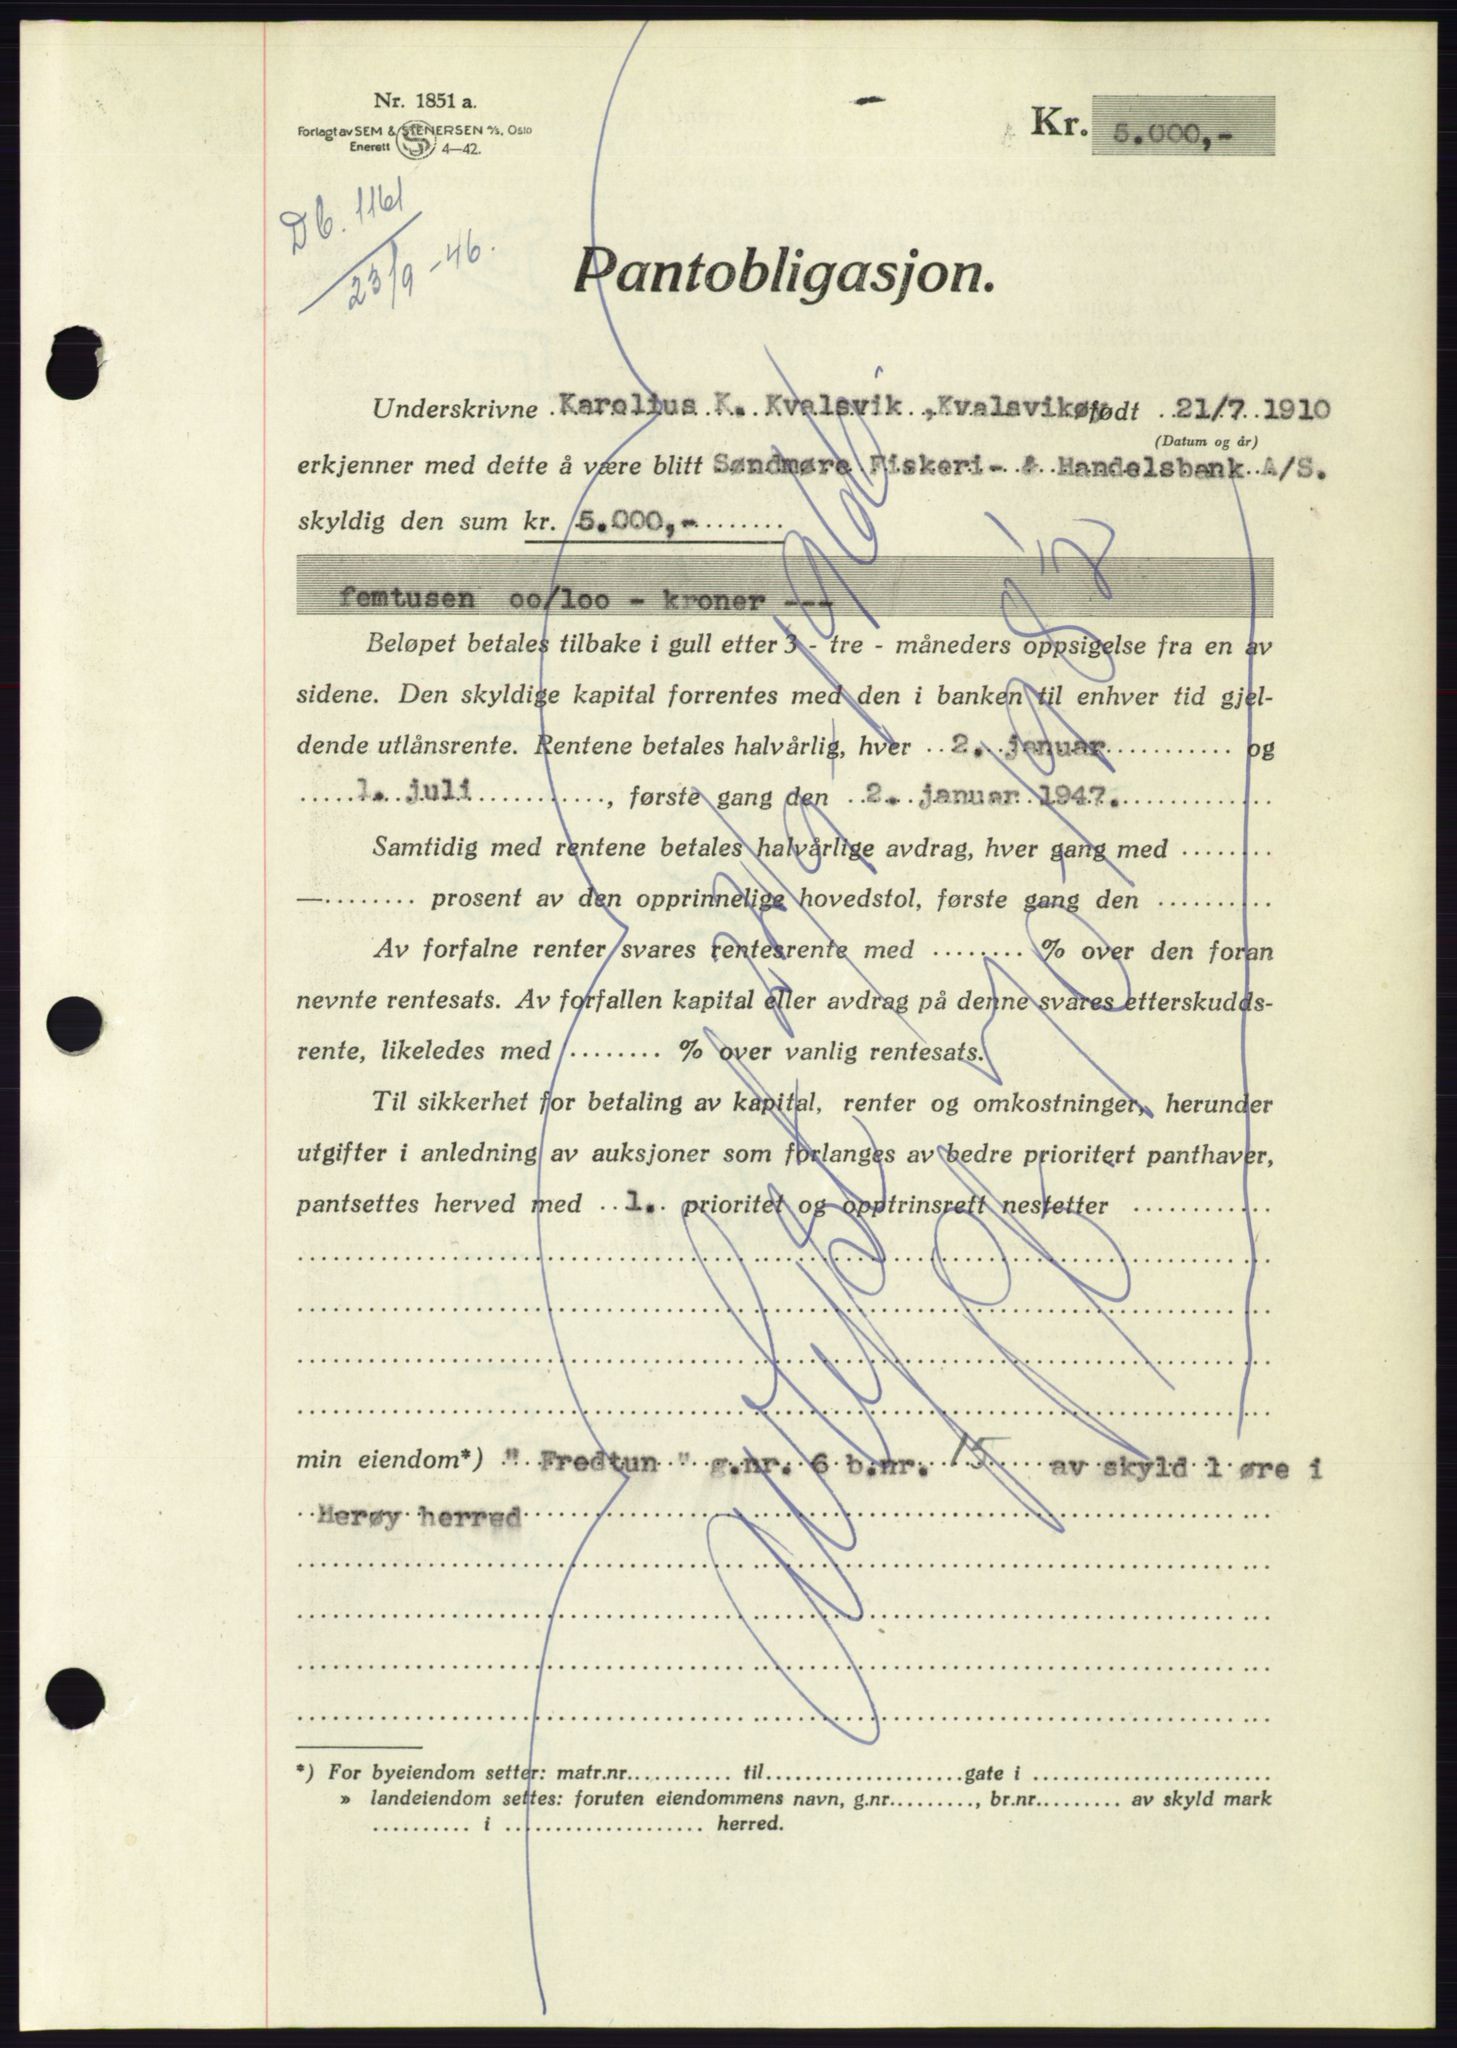 Nr. 1851 a.
Forlagt av SEM & STENERSEN A/S, Oslo
Enerett 4—42.
Kr. 5.000,-
Db. 1161
23/9 - 46.
Pantobligasjon.
Underskrivne Karolius K. Kvalsvik, Kvalsvik født 21/7 1910
(Datum og år)
erkjenner med dette å være blitt Søndmøre Fiskeri- & Handelsbank A/S.
skyldig den sum kr. 5.000,-
femtusen oo/loo - kroner ---
Beløpet betales tilbake i gull etter 3 - tre - måneders oppsigelse fra en av
sidene. Den skyldige kapital forrentes med den i banken til enhver tid gjel-
dende utlånsrente. Rentene betales halvårlig, hver 2. januar og
1. juli, første gang den 2. januar 1947.
Samtidig med rentene betales halvårlige avdrag, hver gang med ........
—......... prosent av den opprinnelige hovedstol, første gang den ..........
Av forfalne renter svares rentesrente med ........ % over den foran
nevnte rentesats. Av forfallen kapital eller avdrag på denne svares etterskudds-
rente, likeledes med ........ % over vanlig rentesats.
Til sikkerhet for betaling av kapital, renter og omkostninger, herunder
utgifter i anledning av auksjoner som forlanges av bedre prioritert panthaver,
pantsettes herved med 1. prioritet og opptrinsrett nestetter ............
min eiendom*) " Fredtun " g.nr. 6 b.nr. 15 av skyld 1 øre i
Herøy herred
*) For byeiendom setter: matr.nr........... til.....................gate i ........................
» landeiendom settes: foruten eiendommens navn, g.nr.........., br.nr......... av skyld mark
.......... i ..................... herred.